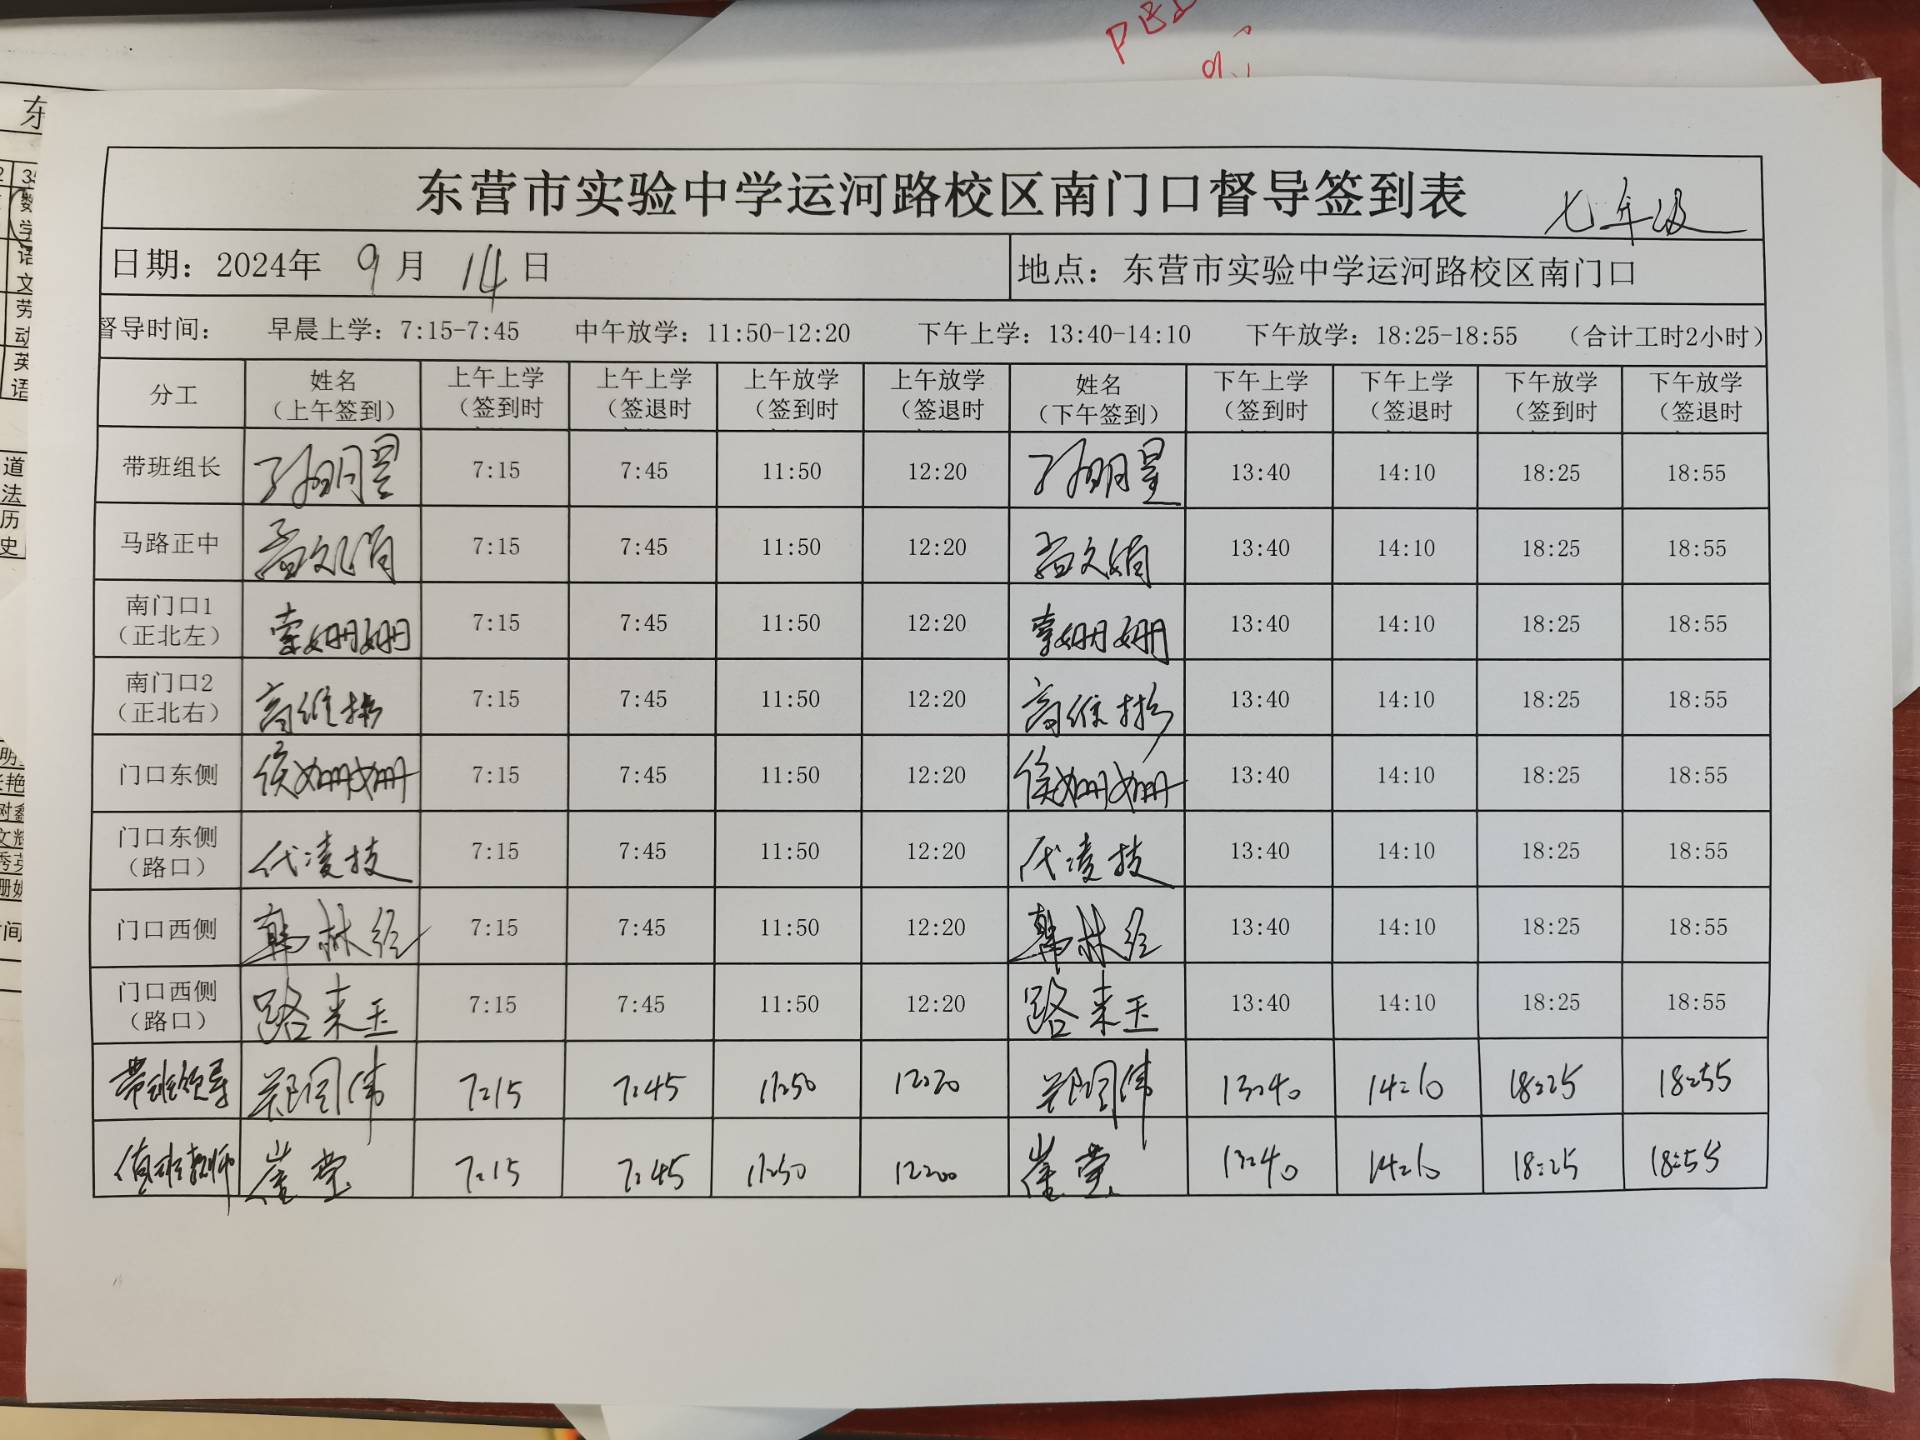 东营市实验中学运河路校区南门口督导签到表 七年级
日期：2024年 9 月 14 日 地点：东营市实验中学运河路校区南门口
督导时间： 早晨上学：7:15-7:45 中午放学：11:50-12:20 下午上学：13:40-14:10 下午放学：18:25-18:55 （合计工时2小时）
分工 姓名 上午上学 上午上学 上午放学 上午放学 姓名 下午上学 下午上学 下午放学 下午放学
（上午签到） （签到时 （签退时 （签到时 （签退时 （下午签到） （签到时 （签退时 （签到时 （签退时
带班组长 孙明昱 7:15 7:45 11:50 12:20 孙明昱 13:40 14:10 18:25 18:55
马路正中 孟文娟 7:15 7:45 11:50 12:20 孟文娟 13:40 14:10 18:25 18:55
南门口1
（正北左） 姗姗 7:15 7:45 11:50 12:20 姗姗 13:40 14:10 18:25 18:55
南门口2
（正北右） 高维 7:15 7:45 11:50 12:20 高维 13:40 14:10 18:25 18:55
门口东侧 侯姗姗 7:15 7:45 11:50 12:20 侯姗姗 13:40 14:10 18:25 18:55
门口东侧
（路口） 代凌技 7:15 7:45 11:50 12:20 代凌技 13:40 14:10 18:25 18:55
门口西侧 韩林 7:15 7:45 11:50 12:20 韩林 13:40 14:10 18:25 18:55
门口西侧
（路口） 路来玉 7:15 7:45 11:50 12:20 路来玉 13:40 14:10 18:25 18:55
带班领导 郑闰伟 7:15 7:45 11:50 12:20 郑闰伟 13:40 14:10 18:25 18:55
值班教师 崔莹 7:15 7:45 11:50 12:20 崔莹 13:40 14:10 18:25 18:55